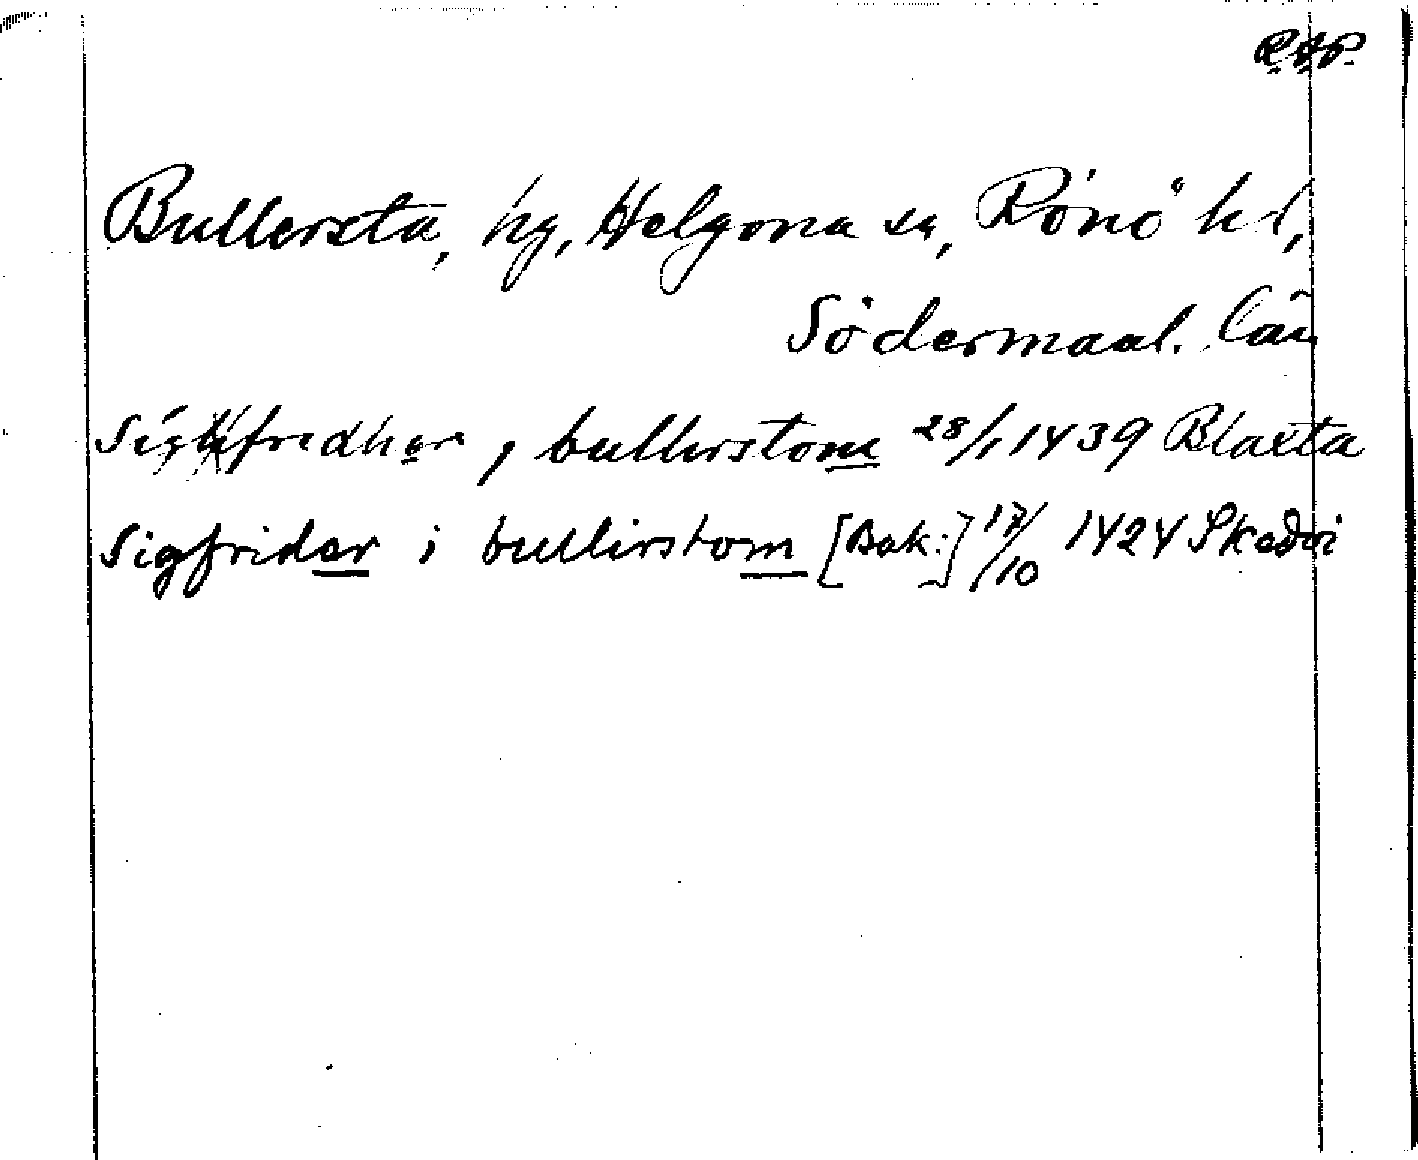 R.A.P.
Bullersta, hg, Helgona sn, Rönö hd,
Södermanl. län
Sighfredher j bullirstom 28/1 1439 Blaxta
Sigfrider i bullirstom [Bak:] 17/10 1424 Skedvi